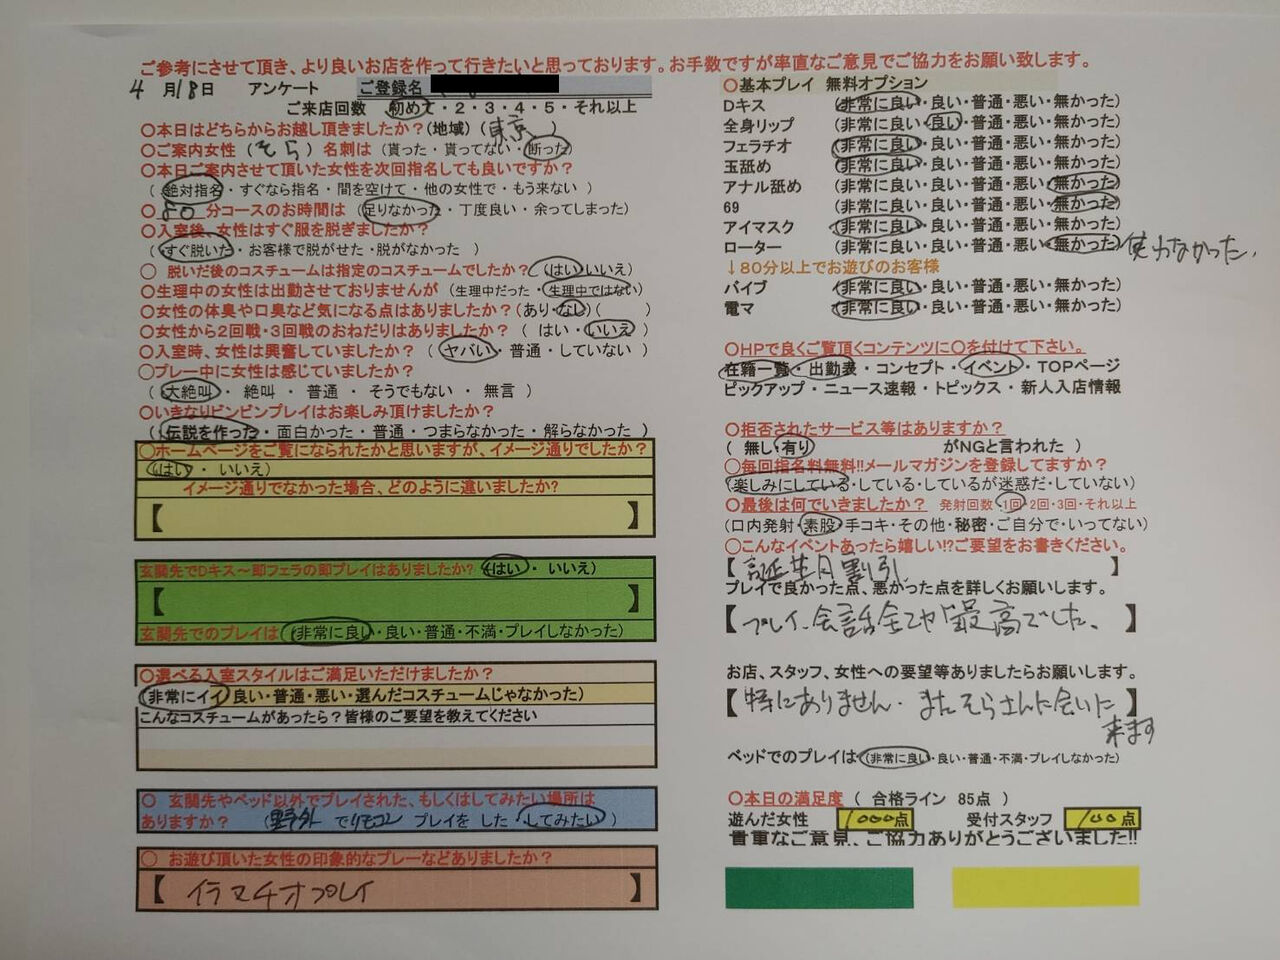 ご参考にさせて頂き、より良いお店を作って行きたいと思っております。お手数ですが率直なご意見でご協力をお願い致します。
4月18日 アンケート ご登録名
ご来店回数 初めて・2・3・4・5・それ以上
〇本日はどちらからお越し頂きましたか?(地域)(東京)
〇ご案内女性(そら)名刺は(貰った・貰ってない・断った)
〇本日ご案内させて頂いた女性を次回指名しても良いですか?
(絶対指名・すぐなら指名・間を空けて・他の女性で・もう来ない)
〇80分コースのお時間は(足りなかった・丁度良い・余ってしまった)
〇入室後、女性はすぐ服を脱ぎましたか?
(すぐ脱いた・お客様で脱がせた・脱がなかった)
〇 脱いだ後のコスチュームは指定のコスチュームでしたか?(はい・いいえ)
〇生理中の女性は出勤させておりませんが(生理中だった・生理中ではない)
〇女性の体臭や口臭など気になる点はありましたか?(あり・なし)( )
〇女性から2回戦・3回戦のおねだりはありましたか?(はい・いいえ)
〇入室時、女性は興奮していましたか?(ヤバい・普通・していない)
〇プレー中に女性は感じていましたか?
(大絶叫・絶叫・普通・そうでもない・無言)
〇いきなりビンビンプレイはお楽しみ頂けましたか?
(伝説を作った・面白かった・普通・つまらなかった・解らなかった)
〇ホームページをご覧になられたかと思いますが、イメージ通りでしたか?
(はい・いいえ)
イメージ通りでなかった場合、どのように違いましたか?
【 】
玄関先でDキス～即フェラの即プレイはありましたか?(はい・いいえ)
【 】
玄関先でのプレイは(非常に良い・良い・普通・不満・プレイしなかった)
〇選べる入室スタイルはご満足いただけましたか?
(非常にイイ・良い・普通・悪い・選んだコスチュームじゃなかった)
こんなコスチュームがあったら?皆様のご要望を教えてください
〇 玄関先やベッド以外でプレイされた、もしくはしてみたい場所は
ありますか?(野外でリモコンプレイをした・してみたい)
〇 お遊び頂いた女性の印象的なプレーなどありましたか?
【イラマチオプレイ】
〇基本プレイ 無料オプション
Dキス (非常に良い・良い・普通・悪い・無かった)
全身リップ (非常に良い・良い・普通・悪い・無かった)
フェラチオ (非常に良い・良い・普通・悪い・無かった)
玉舐め (非常に良い・良い・普通・悪い・無かった)
アナル舐め (非常に良い・良い・普通・悪い・無かった)
69 (非常に良い・良い・普通・悪い・無かった)
アイマスク (非常に良い・良い・普通・悪い・無かった)
ローター (非常に良い・良い・普通・悪い・無かった) 使わなかった.
↓80分以上でお遊びのお客様
バイブ (非常に良い・良い・普通・悪い・無かった)
電マ (非常に良い・良い・普通・悪い・無かった)
〇HPで良くご覧頂くコンテンツに〇を付けて下さい。
在籍一覧・出勤表・コンセプト・イベント・TOPページ
ピックアップ・ニュース速報・トピックス・新人入店情報
〇拒否されたサービス等はありますか?
(無し・有り がNGと言われた)
〇毎回指名料無料!!メールマガジンを登録してますか?
(楽しみにしている・している・しているが迷惑だ・していない)
〇最後は何でいきましたか? 発射回数・1回・2回・3回・それ以上
(口内発射・素股・手コキ・その他・秘密・ご自分で・いってない)
〇こんなイベントあったら嬉しい!?ご要望をお書きください。
【誕生月割引】
プレイで良かった点、悪かった点を詳しくお願いします。
【プレイ、会話全てが最高でした、】
お店、スタッフ、女性への要望等ありましたらお願いします。
【特にありません. またそらさんに会いに】
来ます
ベッドでのプレイは(非常に良い・良い・普通・不満・プレイしなかった)
〇本日の満足度(合格ライン 85点)
遊んだ女性 1000点 受付スタッフ 100点
貴重なご意見、ご協力ありがとうございました!!